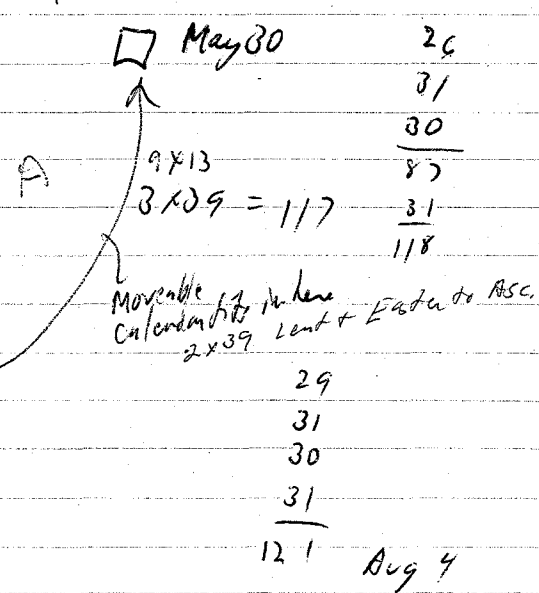 May 30
26
31
30
87
31
118
A
9 x 13
3 x 39 = 117
Moveable
in here
2 x 39 Lent + Easter to Asc.
29
31
30
31
121
Aug 4